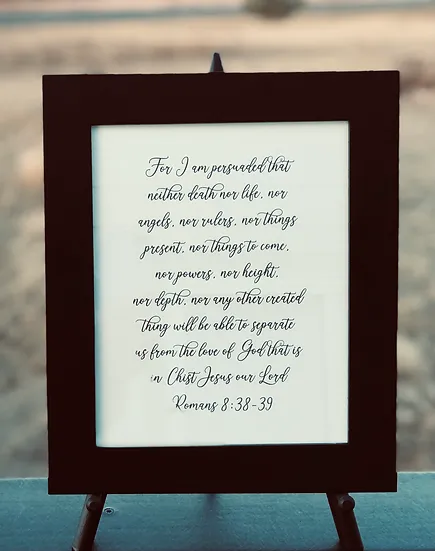 For I am persuaded that
neither death nor life, nor
angels, nor rulers, nor things
present, nor things to come,
nor powers, nor height,
nor depth, nor any other created
thing will be able to separate
us from the love of God that is
in Chist Jesus our Lord
Romans 8:38-39